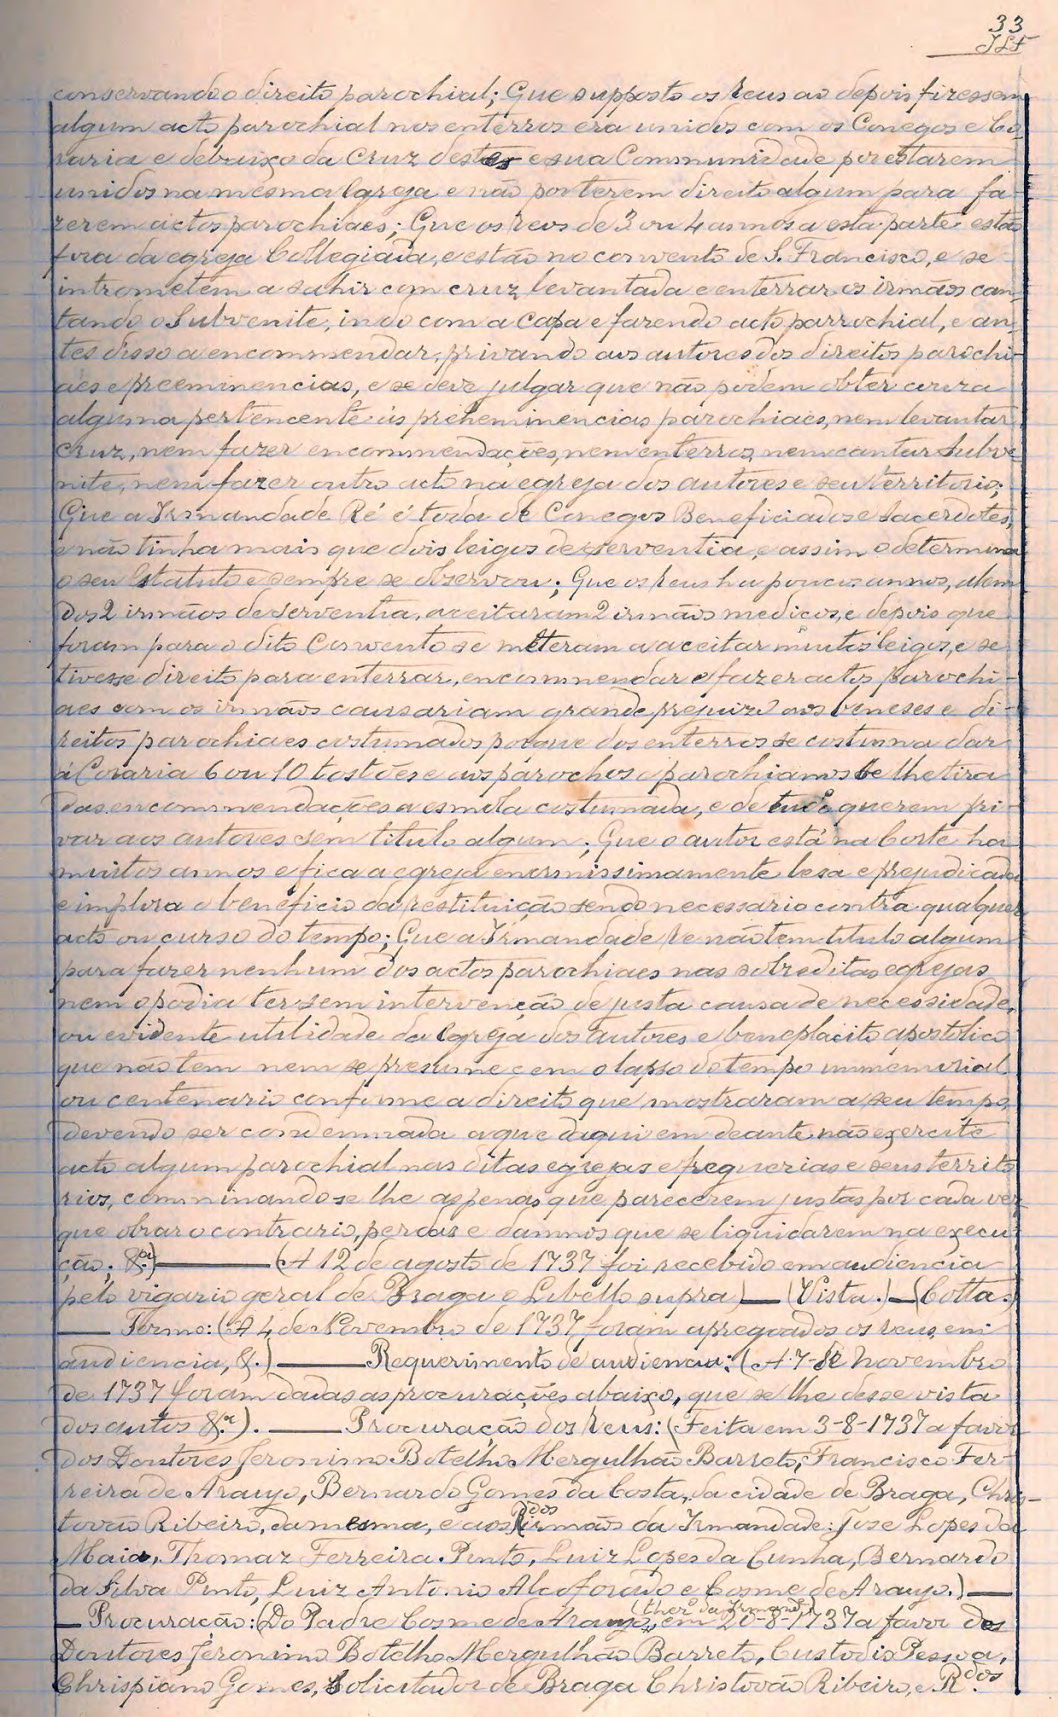 33
JLF
conservando o direito parochial; Que supposto os reus ao depois fizessem
algum acto parochial nos enterros era unidos com os Conegos e Co-
raria e debaixo da Cruz destes e sua Communidade por estarem
unidos na mesma Egreja e não por terem direito algum para fa-
zerem actos parochiaes; Que os reos de 3 ou 4 annos a esta parte estão
fora da egreja Collegiada, e estão no convento de S. Francisco, e se
intrometem a sahir com cruz levantada e enterrar os irmãos can-
tando o Subvenite, indo com a Capa e fazendo acto parrochial, e an-
tes disso a encommendar, privando aos autores dos direitos parochi-
aes e preeminencias, e se deve julgar que não podem obter couza
alguma pertencente ás preheminencias parochiaes, nem levantar
cruz, nem fazer encommendações, nem enterros, nem cantar Subve-
nite, nem fazer outro acto na egreja dos autores e seu territorio;
Que a Irmandade Ré é toda de Conegos Beneficiados e Sacerdotes,
e não tinha mais que dois leigos de serventia, e assim o determina
o seu Estatuto e sempre se observou; Que os reus ha poucos annos, alem
dos 2 irmãos de serventia, aceitaram 2 irmãos medicos, e depois que
foram para o dito Convento se meteram a aceitar muitos leigos, e se
tivesse direito para enterrar, encommendar e fazer actos parochi-
aes com os irmãos causariam grande prejuizo aos beneses e di-
reitos parochiaes costumados porque dos enterros se costuma dar
á Coraria 6 ou 10 tostões e aos párochos o parochianos se lhe tira
das encommendações a esmola costumada, e de tudo querem pri-
var aos autores sem titulo algum; Que o autor está na Corte ha
muitos annos e fica a egreja enormissimamente lesa e prejudicada
e implora o beneficio da restituição sendo necessario contra qualquer
acto ou curso do tempo; Que a Irmandade re não tem titulo algum
para fazer nenhum dos actos parochiaes nas sobreditas egrejas
nem o podia ter sem intervenção de justa causa de necessidade,
ou evidente utilidade da Egreja dos autores e beneplacito apostolico
que não tem nem se presume sem o lapso do tempo immemorial
ou centenario conforme a direito que mostraram a seu tempo,
devendo ser condemnada a que daqui em deante não exercite
acto algum parochial nas ditas egrejas e freguezias e seus territo-
rios, comminando-se lhe as penas que parecerem justas por cada vez
que obrar o contrario, perdas e damnos que se liquidarem na execu-
ção; &.ª) ——— (A 12 de agosto de 1737 foi recebido em audiencia
pelo vigario geral de Braga o Libello supra) — (Vista.) — (Cotta.)
— Termo: (A 4 de Novembro de 1737, foram apregoados os reus em
audiencia, &.) ——— Requerimento de audiencia: (A 7 de novembro
de 1737 foram dadas as procurações abaixo, que se lhe desse vista
dos autos &.ª). ——— Procuração dos reus: (Feita em 3-8-1737 a favor
dos Doutores Jeronimo Botelho Mergulhão Barreto, Francisco Fer-
reira de Araujo, Bernardo Gomes da Costa, da cidade de Braga, Chris-
tovão Ribeiro, da mesma, e aos R.dos irmãos da Irmandade: Jose Lopes da
Maia, Thomaz Ferreira Pinto, Luiz Lopes da Cunha, Bernardo
da Silva Pinto, Luiz Antonio Alcoforado e Cosme de Araujo.) —
— Procuração: (Do Padre Cosme de Araujo, (thez.º da Irmand.e) em 20-8-1737 a favor dos
Doutores Jeronimo Botelho Mergulhão Barreto, Custodio Pessoa,
Chrispiano Gomes, Solicitador de Braga Christovão Ribeiro, e R.dos